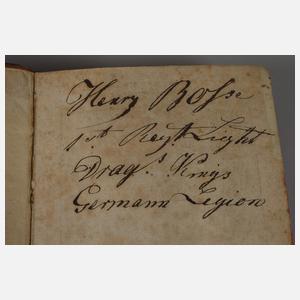 Henry Boſse
1st. Regt. Light
Drags. Kings
Germann Legion